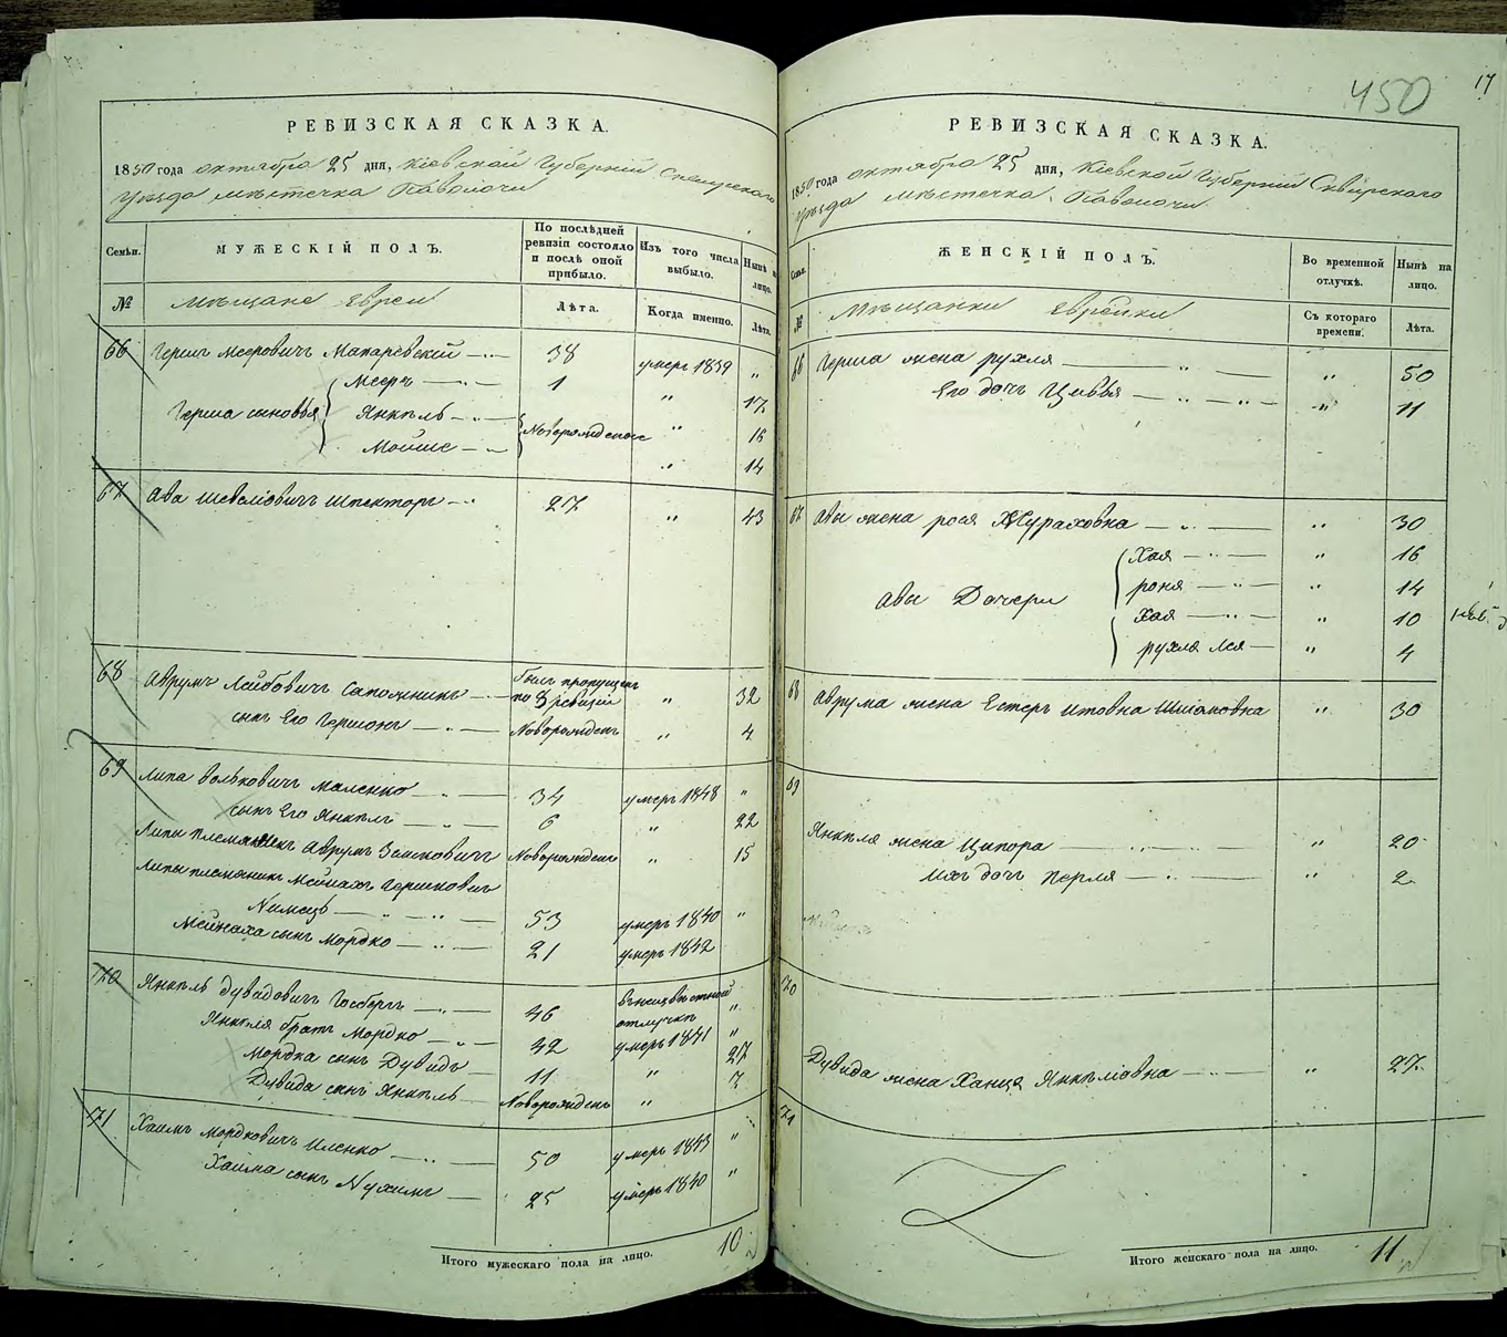 РЕВИЗСКАЯ СКАЗКА.
1850 года октября 25 дня, Кіевской Губерніи Сквирскаго
Уезда мѣстечка Паволочи
Семьи.
МУЖЕСКІЙ ПОЛЪ.
По послѣдней ревизіи состояло и послѣ оной прибыло.
Изъ того числа выбыло.
Нынѣ на лицо.
№
Мѣщане Евреи
Лѣта.
Когда именно.
Лѣта.
66 Гершъ Мееровичъ Макаревскій 38 умеръ 1839 "
Герша сыновья Мееръ 1 " 17
Янкель Новорожденые " 16
Мошко " 14
67 Ава Шевеліовичъ Шпекторъ 27 " 43
68 Аврумъ Лейбовичъ Сапожникъ былъ пропущенъ по 8 ревизіи " 32
сынъ Его Гершонъ Новорожденъ " 4
69 Липа Вольковичъ Маленко 34 умеръ 1848 "
сынъ Его Янкель 6 " 22
Липы племянникъ Аврумъ Новорожденъ " 15
Липы племянникъ Мейнахъ Гершковичъ
Нимецъ 53 умеръ 1840 "
Мейнаха сынъ Мордко 21 умеръ 1842
70 Янкель Дувидовичъ Госбергъ 46 въ неизвѣстной отлучкѣ "
Янкеля братъ Мордко 42 умеръ 1841 "
Мордка сынъ Дувидъ 11 " 27
Дувида сынъ Янкель Новорожденъ " 7
71 Хаимъ Мордковичъ Иленко 50 умеръ 1843 "
Хаима сынъ Нухимъ 25 умеръ 1840 "
Итого мужескаго пола на лицо. 10
450
17
РЕВИЗСКАЯ СКАЗКА.
1850 года октября 25 дня, Кіевской Губерніи Сквирскаго
Уезда мѣстечка Паволочи
Семьи.
ЖЕНСКІЙ ПОЛЪ.
Во временной отлучкѣ.
Нынѣ на лицо.
№
Мѣщанки Еврейки
Съ котораго времени.
Лѣта.
66 Герша жена Рухля " 50
Его дочь Цивья " 11
67 Авы жена Рося Жураховка " 30
Авы Дочери Хая " 16
Роня " 14
Хая " 10
Рухля Лея " 4
68 Аврума жена Естеръ Итовна " 30
69
Янкеля жена Ципора " 20
Ихъ дочь Перля " 2
70
Дувида жена Ханця Янкеліовна " 27
71
Итого женскаго пола на лицо. 11